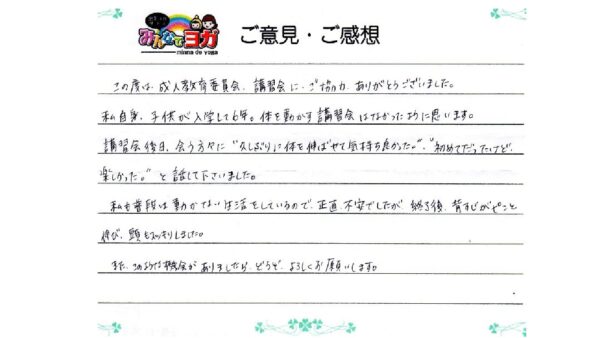 みんなでヨガ
minna de yoga
ご意見・ご感想
この度は、成人教育委員会、講習会に、ご協力、ありがとうございました。
私自身、子供が入学して6年。体を動かす講習会はなかったように思います。
講習会後日、会う方々に"久しぶりに体を伸ばせて気持ち良かった。"、"初めてだったけど、
楽しかった。"と話して下さいました。
私も普段は動かない生活をしているので、正直、不安でしたが、終了後、背すじがピンと
伸び、頭もスッキリしました。
また、このような機会がありましたら、どうぞ、よろしくお願いします。